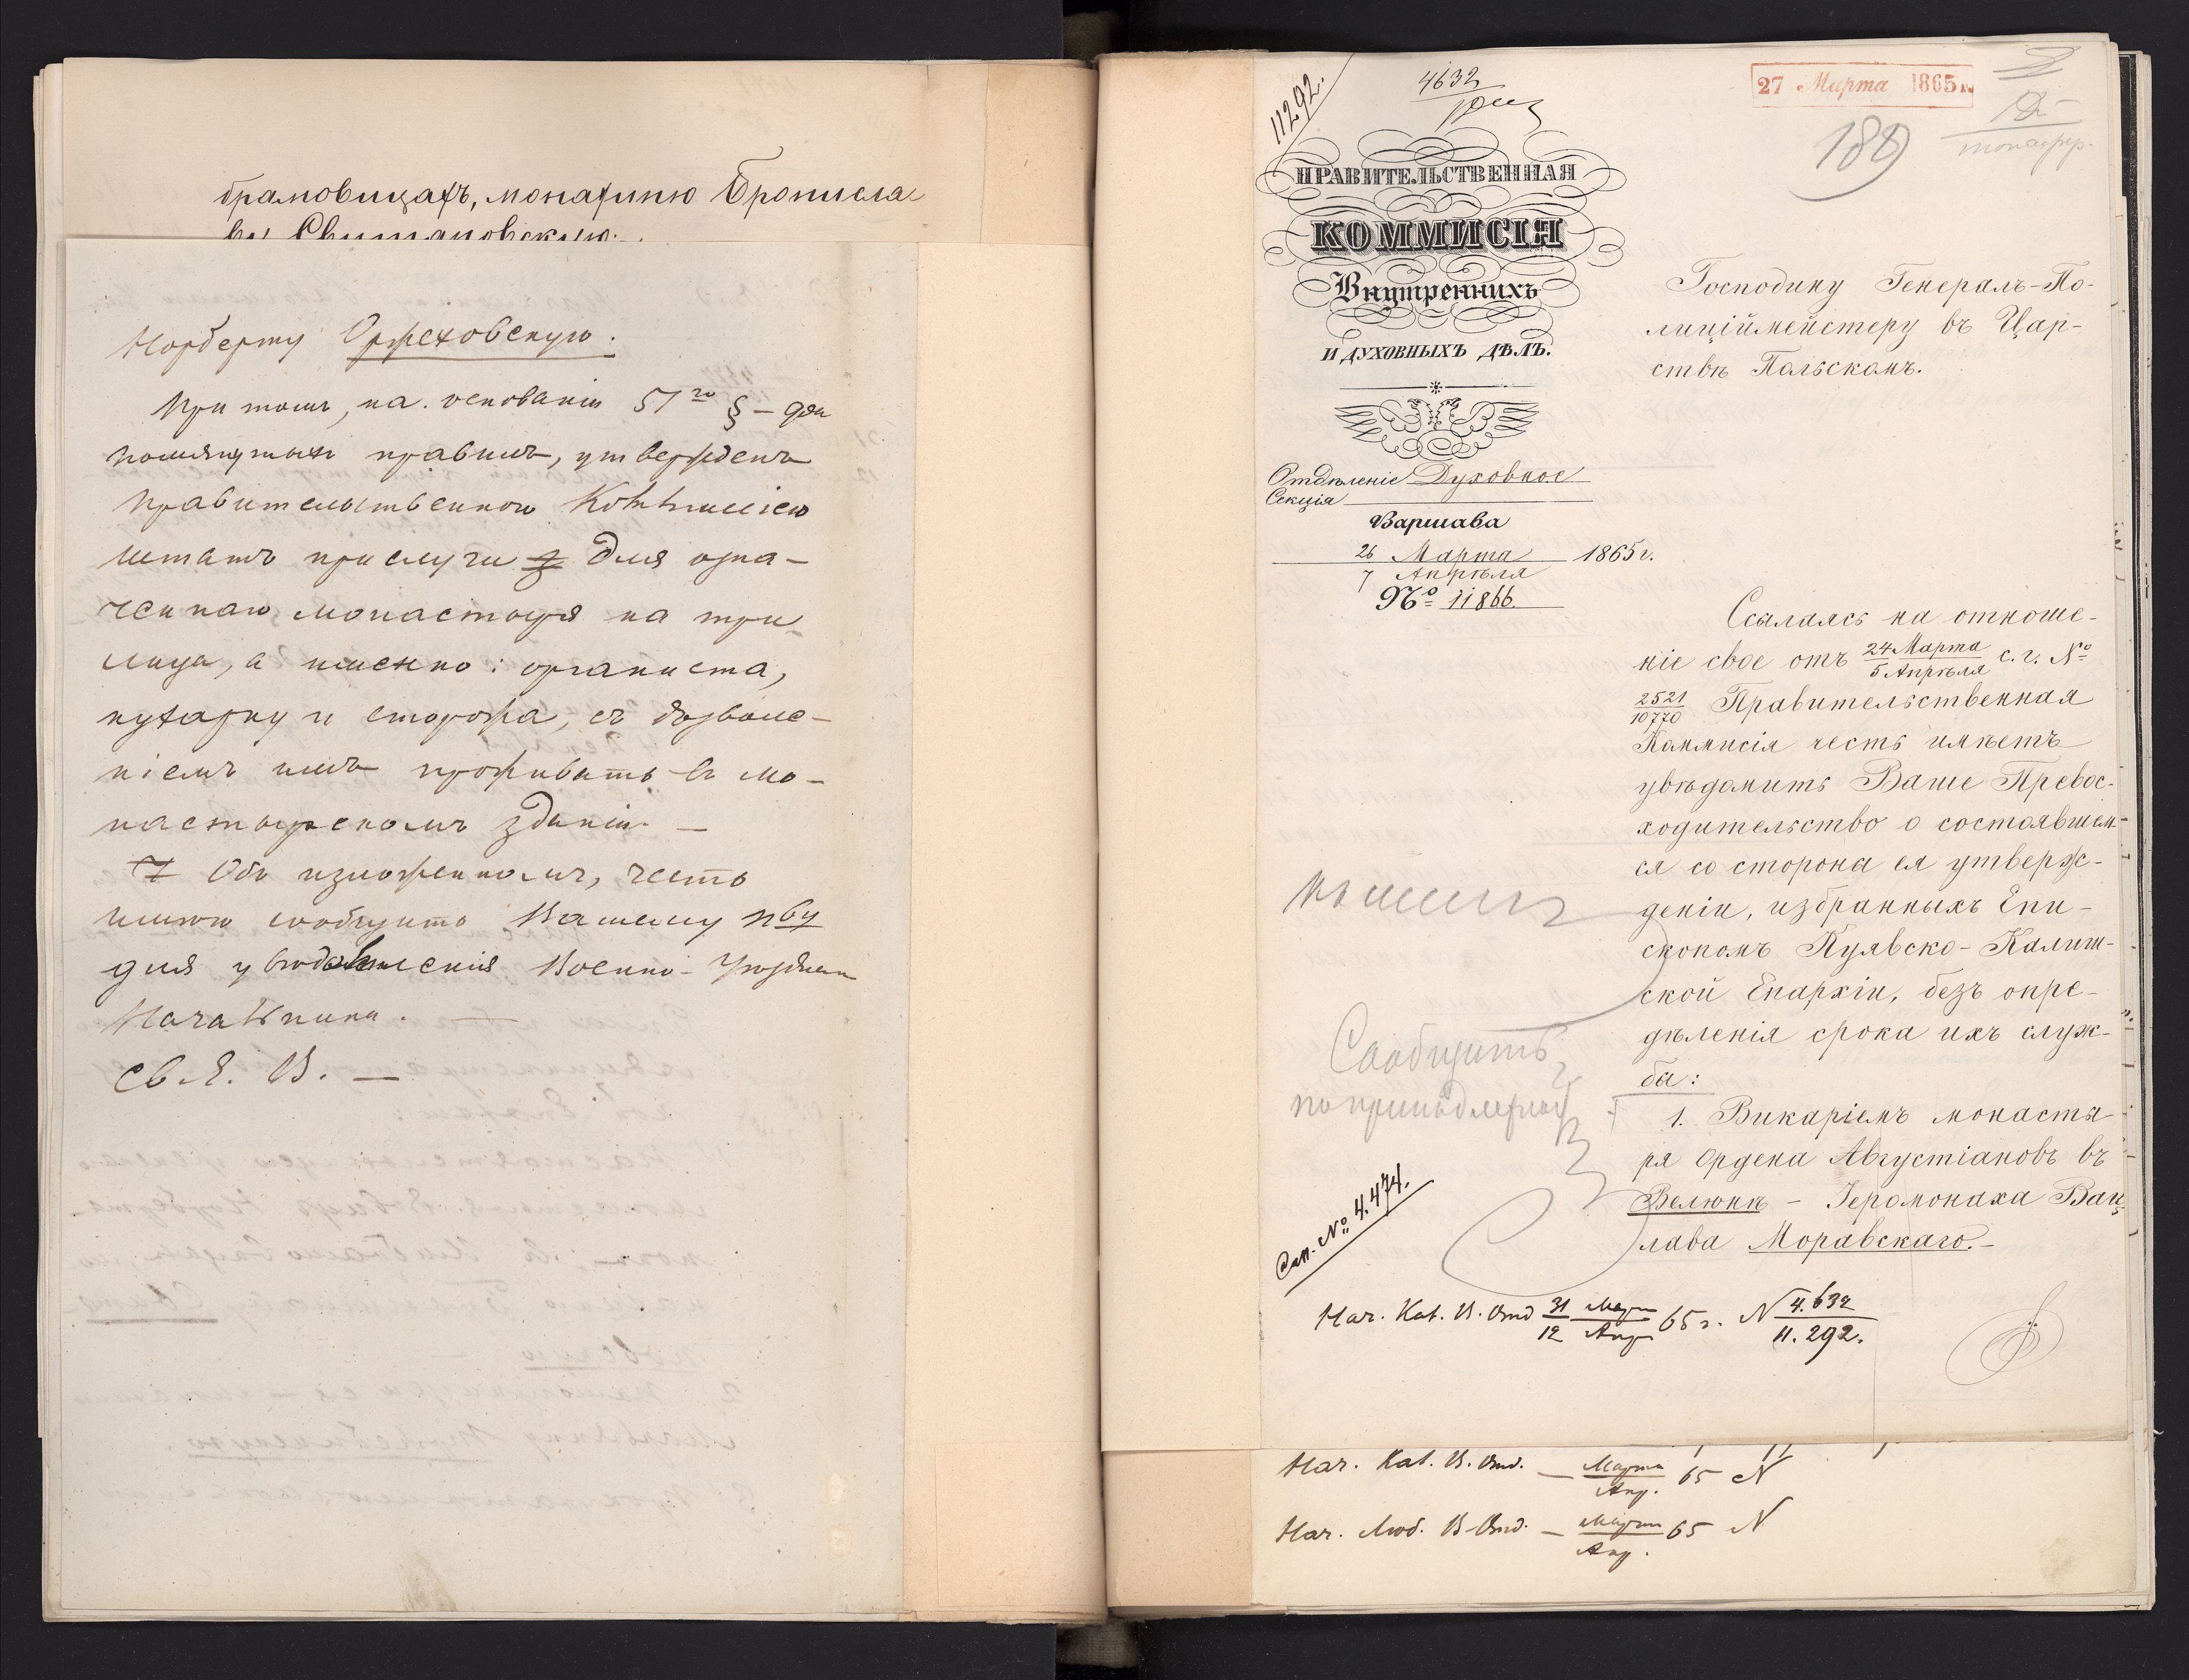 брамовицахъ, монахиню Бронисла
вы Свитановскую.
Норберту Оржеховскую.
При томъ, на основаніи 57го § –
помянутыхъ правилъ, утвержденъ
Правительственною Коммиссіею
штатъ прислуги для озна–
ченнаго монастыря на три
лица, а именно: органиста,
кухарку и сторожа, съ дозволе–
ніемъ имъ проживать въ мо–
настырскомъ зданіи. –
Объ изложенномъ, честь
имѣю сообщить Вашему
для увѣдомленія Военно-Уѣзднаго
Начальника. –
СВ. Е. В. –
11292.
4632
27 Марта 1865 г.
189
ПРАВИТЕЛЬСТВЕННАЯ
КОММИСІЯ
Внутреннихъ
И ДУХОВНЫХЪ ДѢЛЪ.
Отдѣленіе Духовное
Секція
Варшава
26 Марта 1865 г.
7 Апрѣля
№ 11866.
Господину Генералъ-По-
лиціймейстеру въ Цар-
ствѣ Польскомъ.
Ссылаясь на отноше-
ніе свое отъ 24 Марта/5 Апрѣля с. г. №
2521/10770 Правительственная
Коммисія честь имѣетъ
увѣдомить Ваше Превос-
ходительство о состоявшем-
ся со стороны ея утверж-
деніи, избранныхъ Епи-
скопомъ Куявско-Калиш-
ской Епархіи, безъ опре-
дѣленія срока ихъ служ-
бы:
1. Викаріемъ монасты-
ря Ордена Августіановъ въ
Велюнѣ – Іеромонаха Вац-
лава Моравскаго. –
Сообщить
по принадлежности
Сл. № 4.474.
Нач. Кал. В. Отд 31/12 Мар/Апр 65 г. N 4.632/11.292.
Нач. Кал. В. Отд. – Марта/Апр. 65 N
Нач. Люб. В. Отд. – Марта/Апр. 65 N